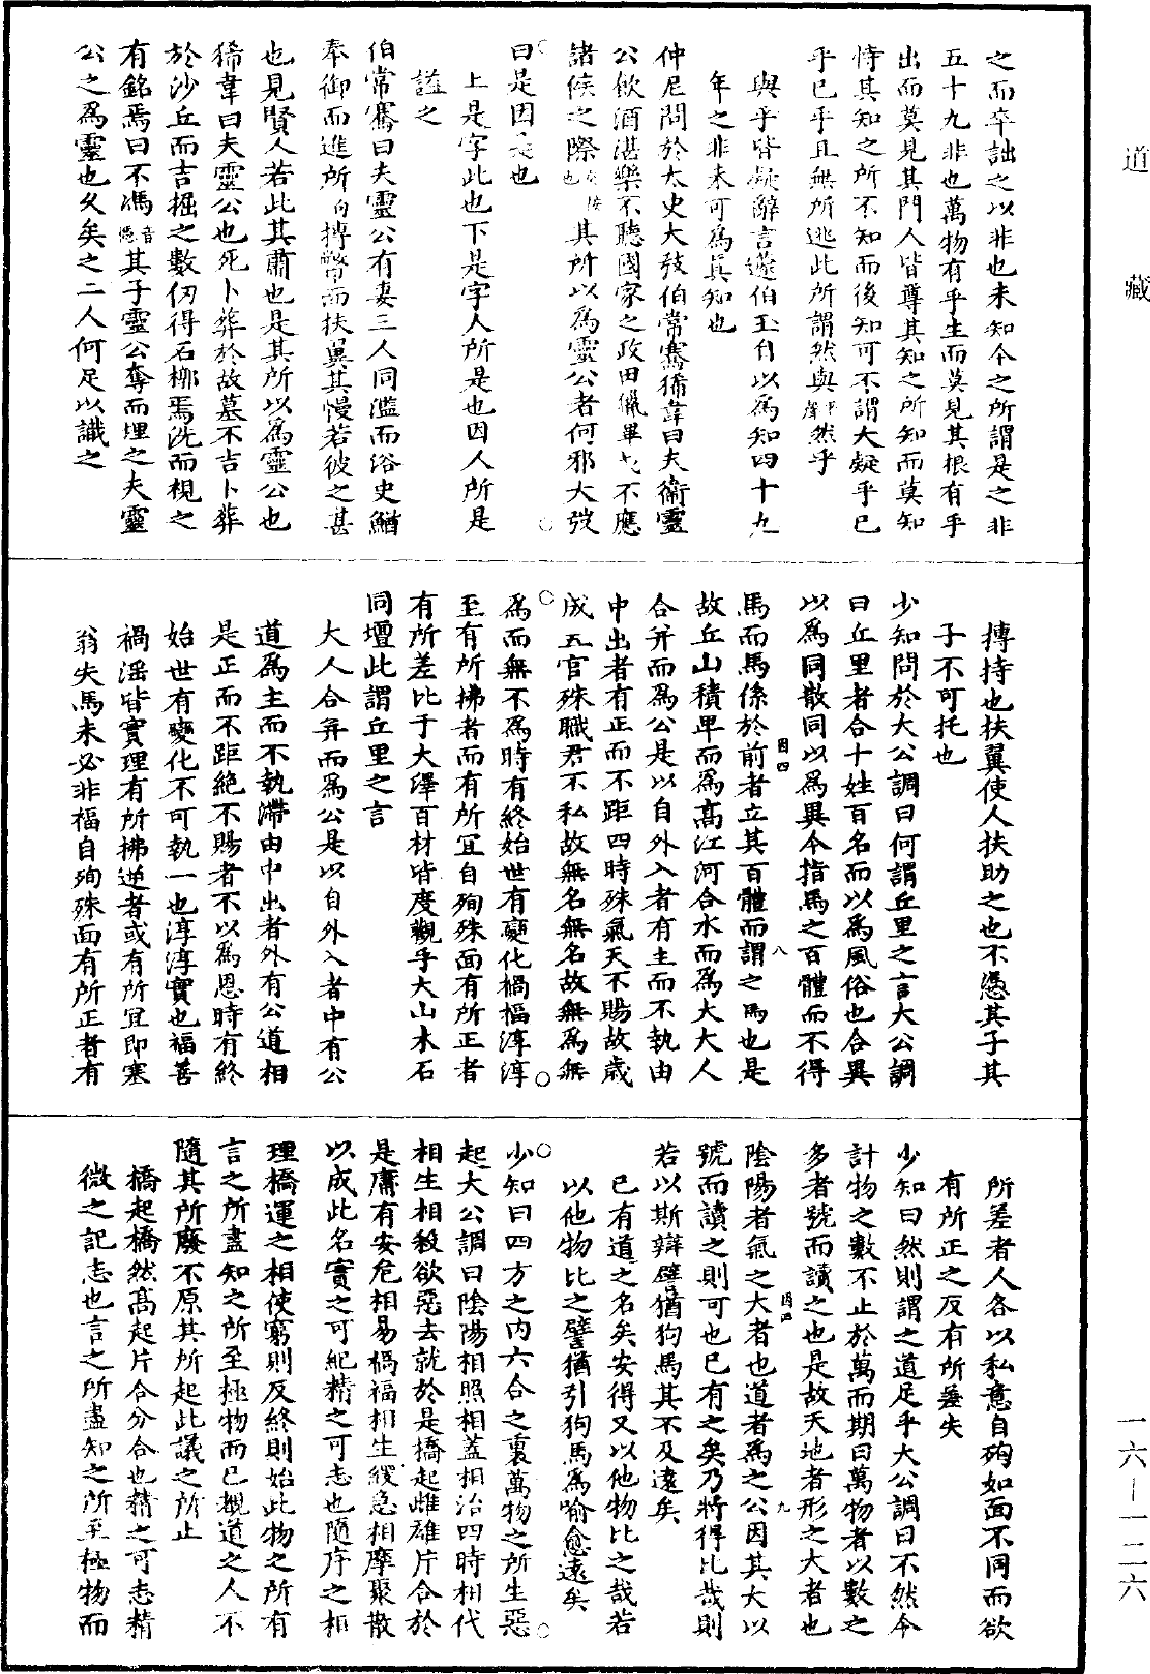 道藏
之而卒詘之以非也未知今之所謂是之非
五十九非也萬物有乎生而莫見其根有乎
出而莫見其門人皆尊其知之所知而莫知
恃其知之所不知而後知可不謂大疑乎已
乎已乎且無所逃此所謂然與然乎
與乎皆疑辭言蘧伯玉自以為知四十九
年之非未可為真知也
仲尼問於太史大弢伯常騫狶韋曰夫衛靈
公飲酒湛樂不聽國家之政田獵畢弋不應
諸侯之際其所以為靈公者何邪大弢
曰是因是也
上是字此也下是字人所是也因人所是
謚之
伯常騫曰夫靈公有妻三人同濫而浴史鰌
奉御而進所向搏幣而扶翼其慢若彼之甚
也見賢人若此其肅也是其所以為靈公也
狶韋曰夫靈公也死卜葬於故墓不吉卜葬
於沙丘而吉掘之數仞得石槨焉洗而視之
有銘焉曰不馮音憑其子靈公奪而埋之夫靈
公之為靈也久矣之二人何足以識之
摶持也扶翼使人扶助之也不憑其子其
子不可托也
少知問於大公調曰何謂丘里之言大公調
曰丘里者合十姓百名而以為風俗也合異
以為同散同以為異今指馬之百體而不得
馬而馬係於前者立其百體而謂之馬也是
故丘山積卑而為高江河合水而為大大人
合并而為公是以自外入者有主而不執由
中出者有正而不距四時殊氣天不賜故歲
成五官殊職君不私故無名無名故無為無
為而無不為時有終始世有變化禍福淳淳
至有所拂者而有所宜自殉殊面有所正者
有所差比于大澤百材皆度觀乎大山木石
同壇此謂丘里之言
大人合并而為公是以自外入者中有公
道為主而不執滯由中出者外有公道相
是正而不距絕不賜者不以為恩時有終
始世有變化不可執一也淳淳實也福善
禍淫皆實理有所拂逆者或有所宜即塞
翁失馬未必非福自殉殊面有所正者有
所差者人各以私意自殉如面不同而欲
有所正之反有所差失
少知曰然則謂之道足乎大公調曰不然今
計物之數不止於萬而期曰萬物者以數之
多者號而讀之也是故天地者形之大者也
陰陽者氣之大者也道者為之公因其大以
號而讀之則可也已有之矣乃將得比哉則
若以斯辯譬猶狗馬其不及遠矣
已有道之名矣安得又以他物比之哉若
以他物比之譬猶引狗馬為喻愈遠矣
少知曰四方之內六合之裏萬物之所生惡
起大公調曰陰陽相照相蓋相治四時相代
相生相殺欲惡去就於是橋起雌雄片合於
是庸有安危相易禍福相生緩急相摩聚散
以成此名實之可紀精之可志也隨序之相
理橋運之相使窮則反終則始此物之所有
言之所盡知之所至極物而已覩道之人不
隨其所廢不原其所起此議之所止
橋起橋然高起片合分合也精之可志精
微之記志也言之所盡知之所至極物而
一六—一二六